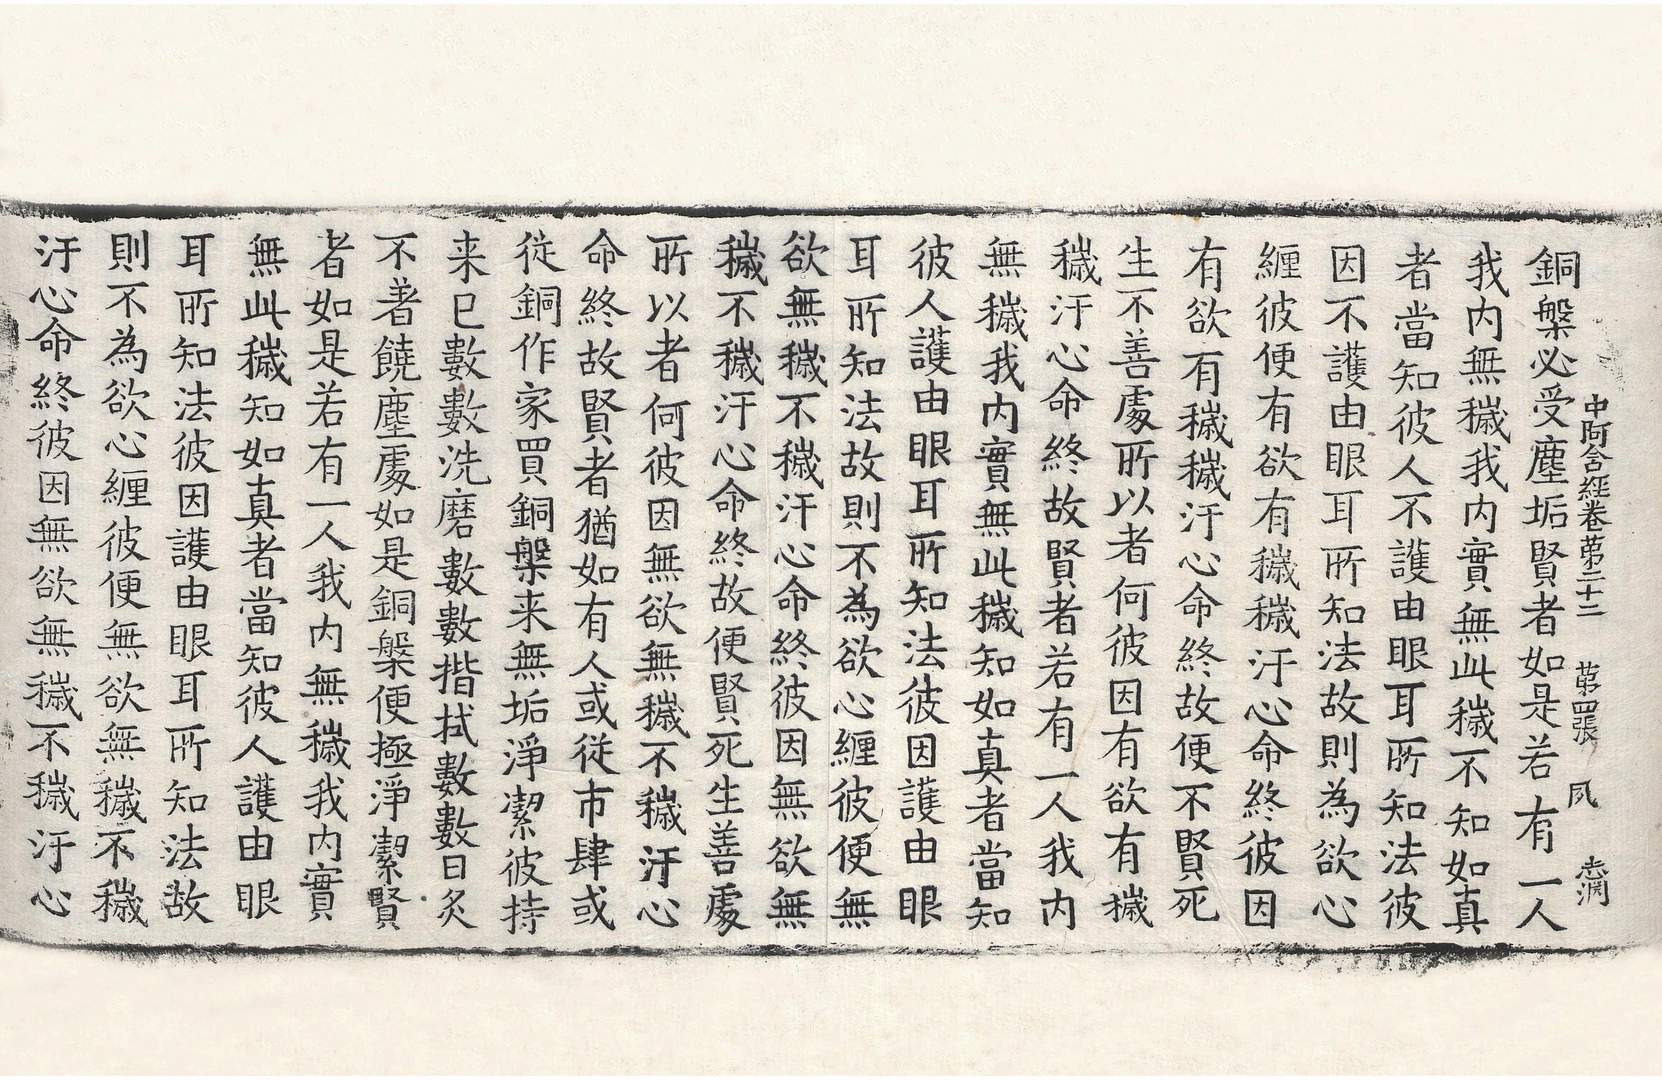 中阿含經卷第二十二 第四張 夙
銅槃必受塵垢賢者如是若有一人
我内無穢我内實無此穢不知如真
者當知彼人不護由眼耳所知法彼
因不護由眼耳所知法故則為欲心
纏彼便有欲有穢穢汙心命終彼因
有欲有穢穢汙心命終故便不賢死
生不善處所以者何彼因有欲有穢
穢汙心命終故賢者若有一人我内
無穢我内實無此穢知如真者當知
彼人護由眼耳所知法彼因護由眼
耳所知法故則不為欲心纏彼便無
欲無穢不穢汙心命終彼因無欲無
穢不穢汙心命終故便賢死生善處
所以者何彼因無欲無穢不穢汙心
命終故賢者猶如有人或從市肆或
從銅作家買銅槃来無垢淨潔彼持
来已數數洗磨數數揩拭數數日炙
不著饒塵處如是銅槃便極淨潔賢
者如是若有一人我内無穢我内實
無此穢知如真者當知彼人護由眼
耳所知法彼因護由眼耳所知法故
則不為欲心纏彼便無欲無穢不穢
汙心命終彼因無欲無穢不穢汙心